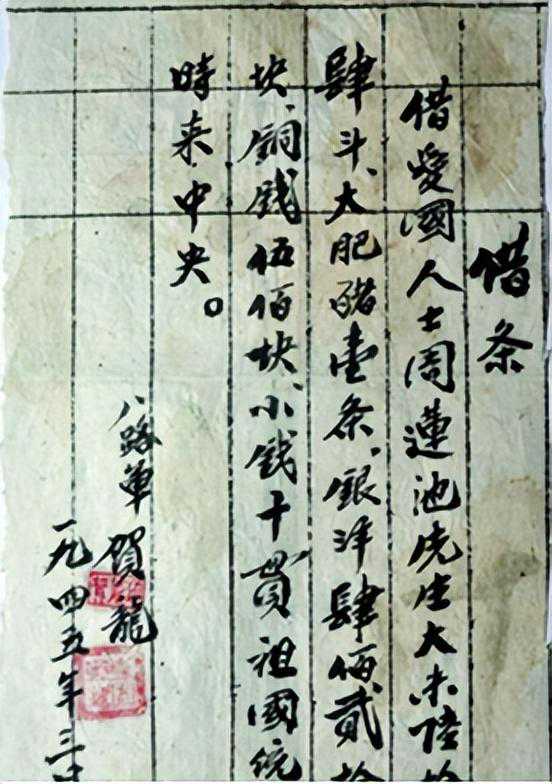 借条
借愛國人士周蓮池先生大米陸
肆斗、大肥豬壹条、銀洋肆佰貳拾
块、銅戋伍佰块、小戋十貫祖國統
時来中央。
八路軍賀龍
一九四五年三月